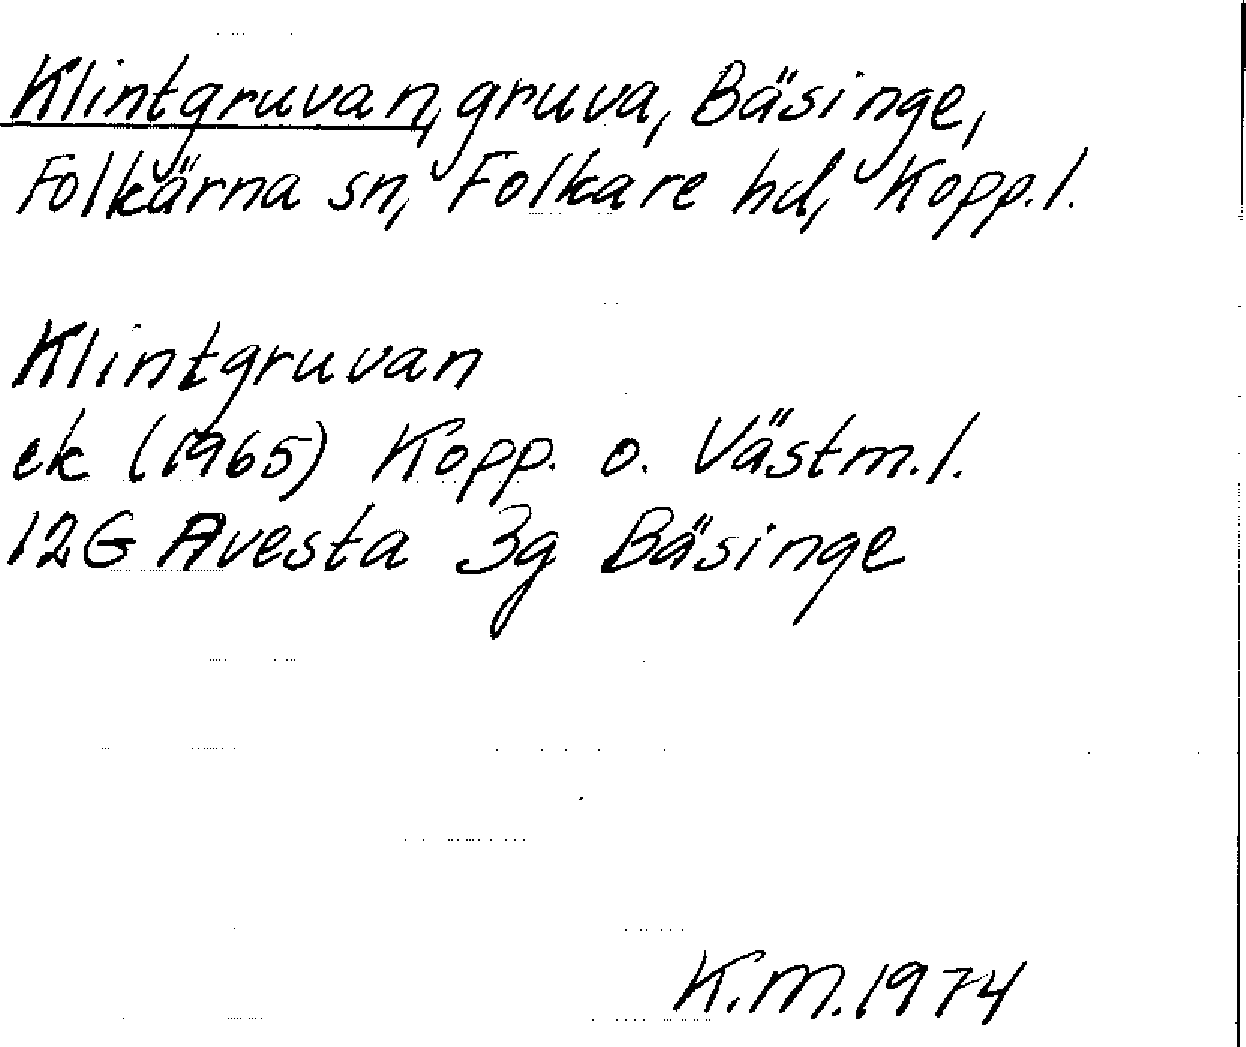 Klintgruvan, gruva, Bäsinge,
Folkärna sn, Folkare hd, Kopp.l.
Klintgruvan
ek (1965) Kopp. o. Västm.l.
12G Avesta 3g Bäsinge
K.M.1974